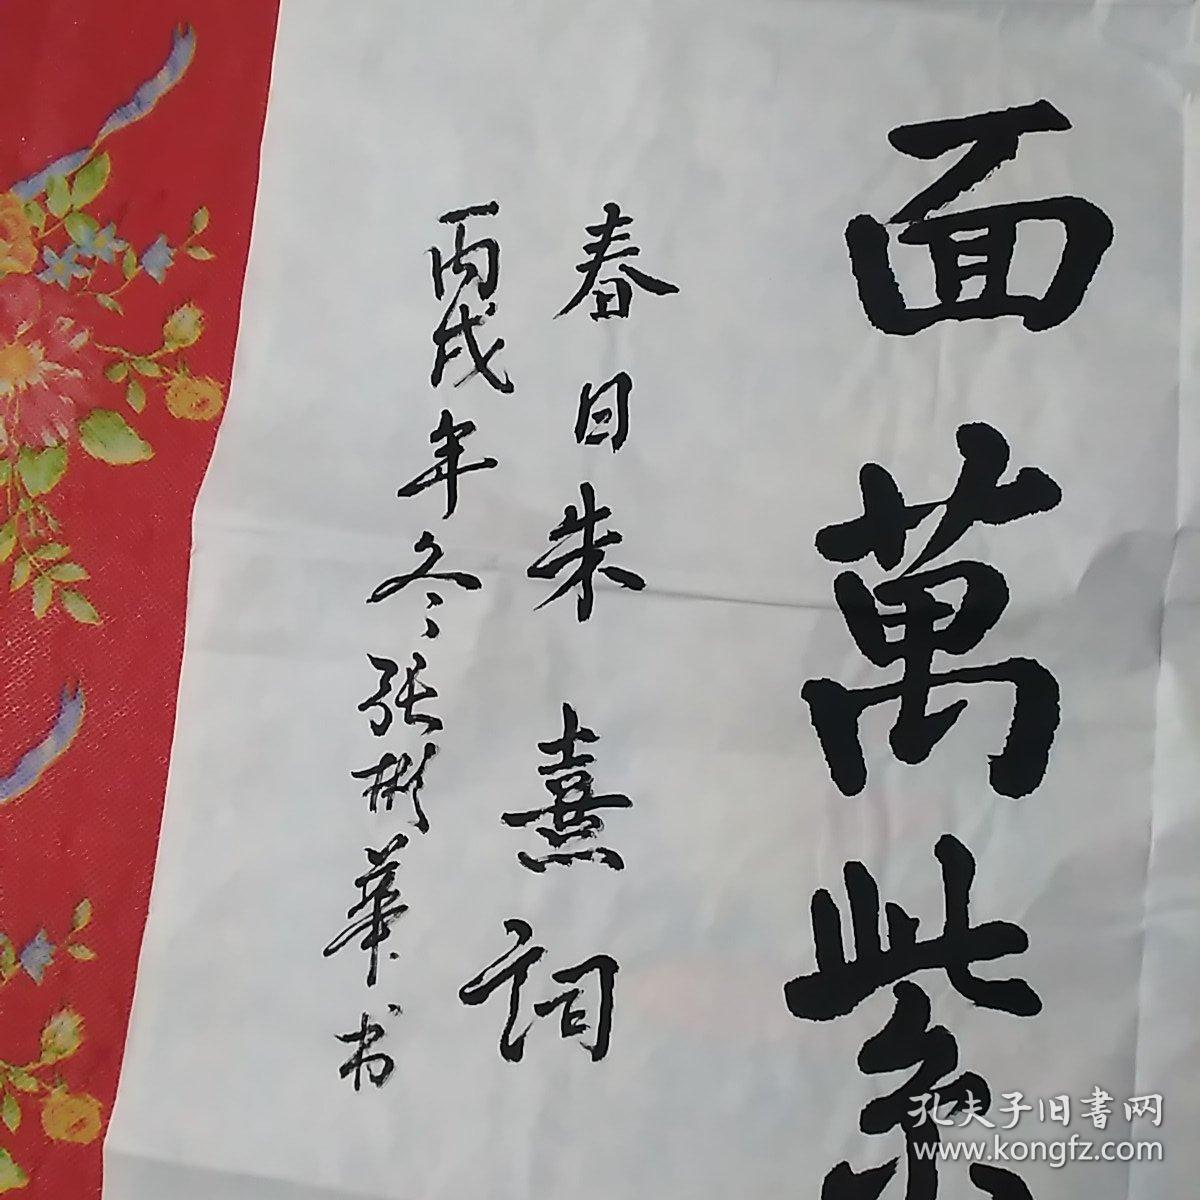 面萬紫
春日朱熹詞
丙戌年冬張彬華书
孔夫子旧書网
www.kongfz.com